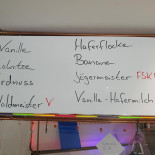 Vanille
Lakritze
Erdnuss
Waldmeister V
Haferflocke
Banane
Jägermeister FSK
Vanille-Hafermilch